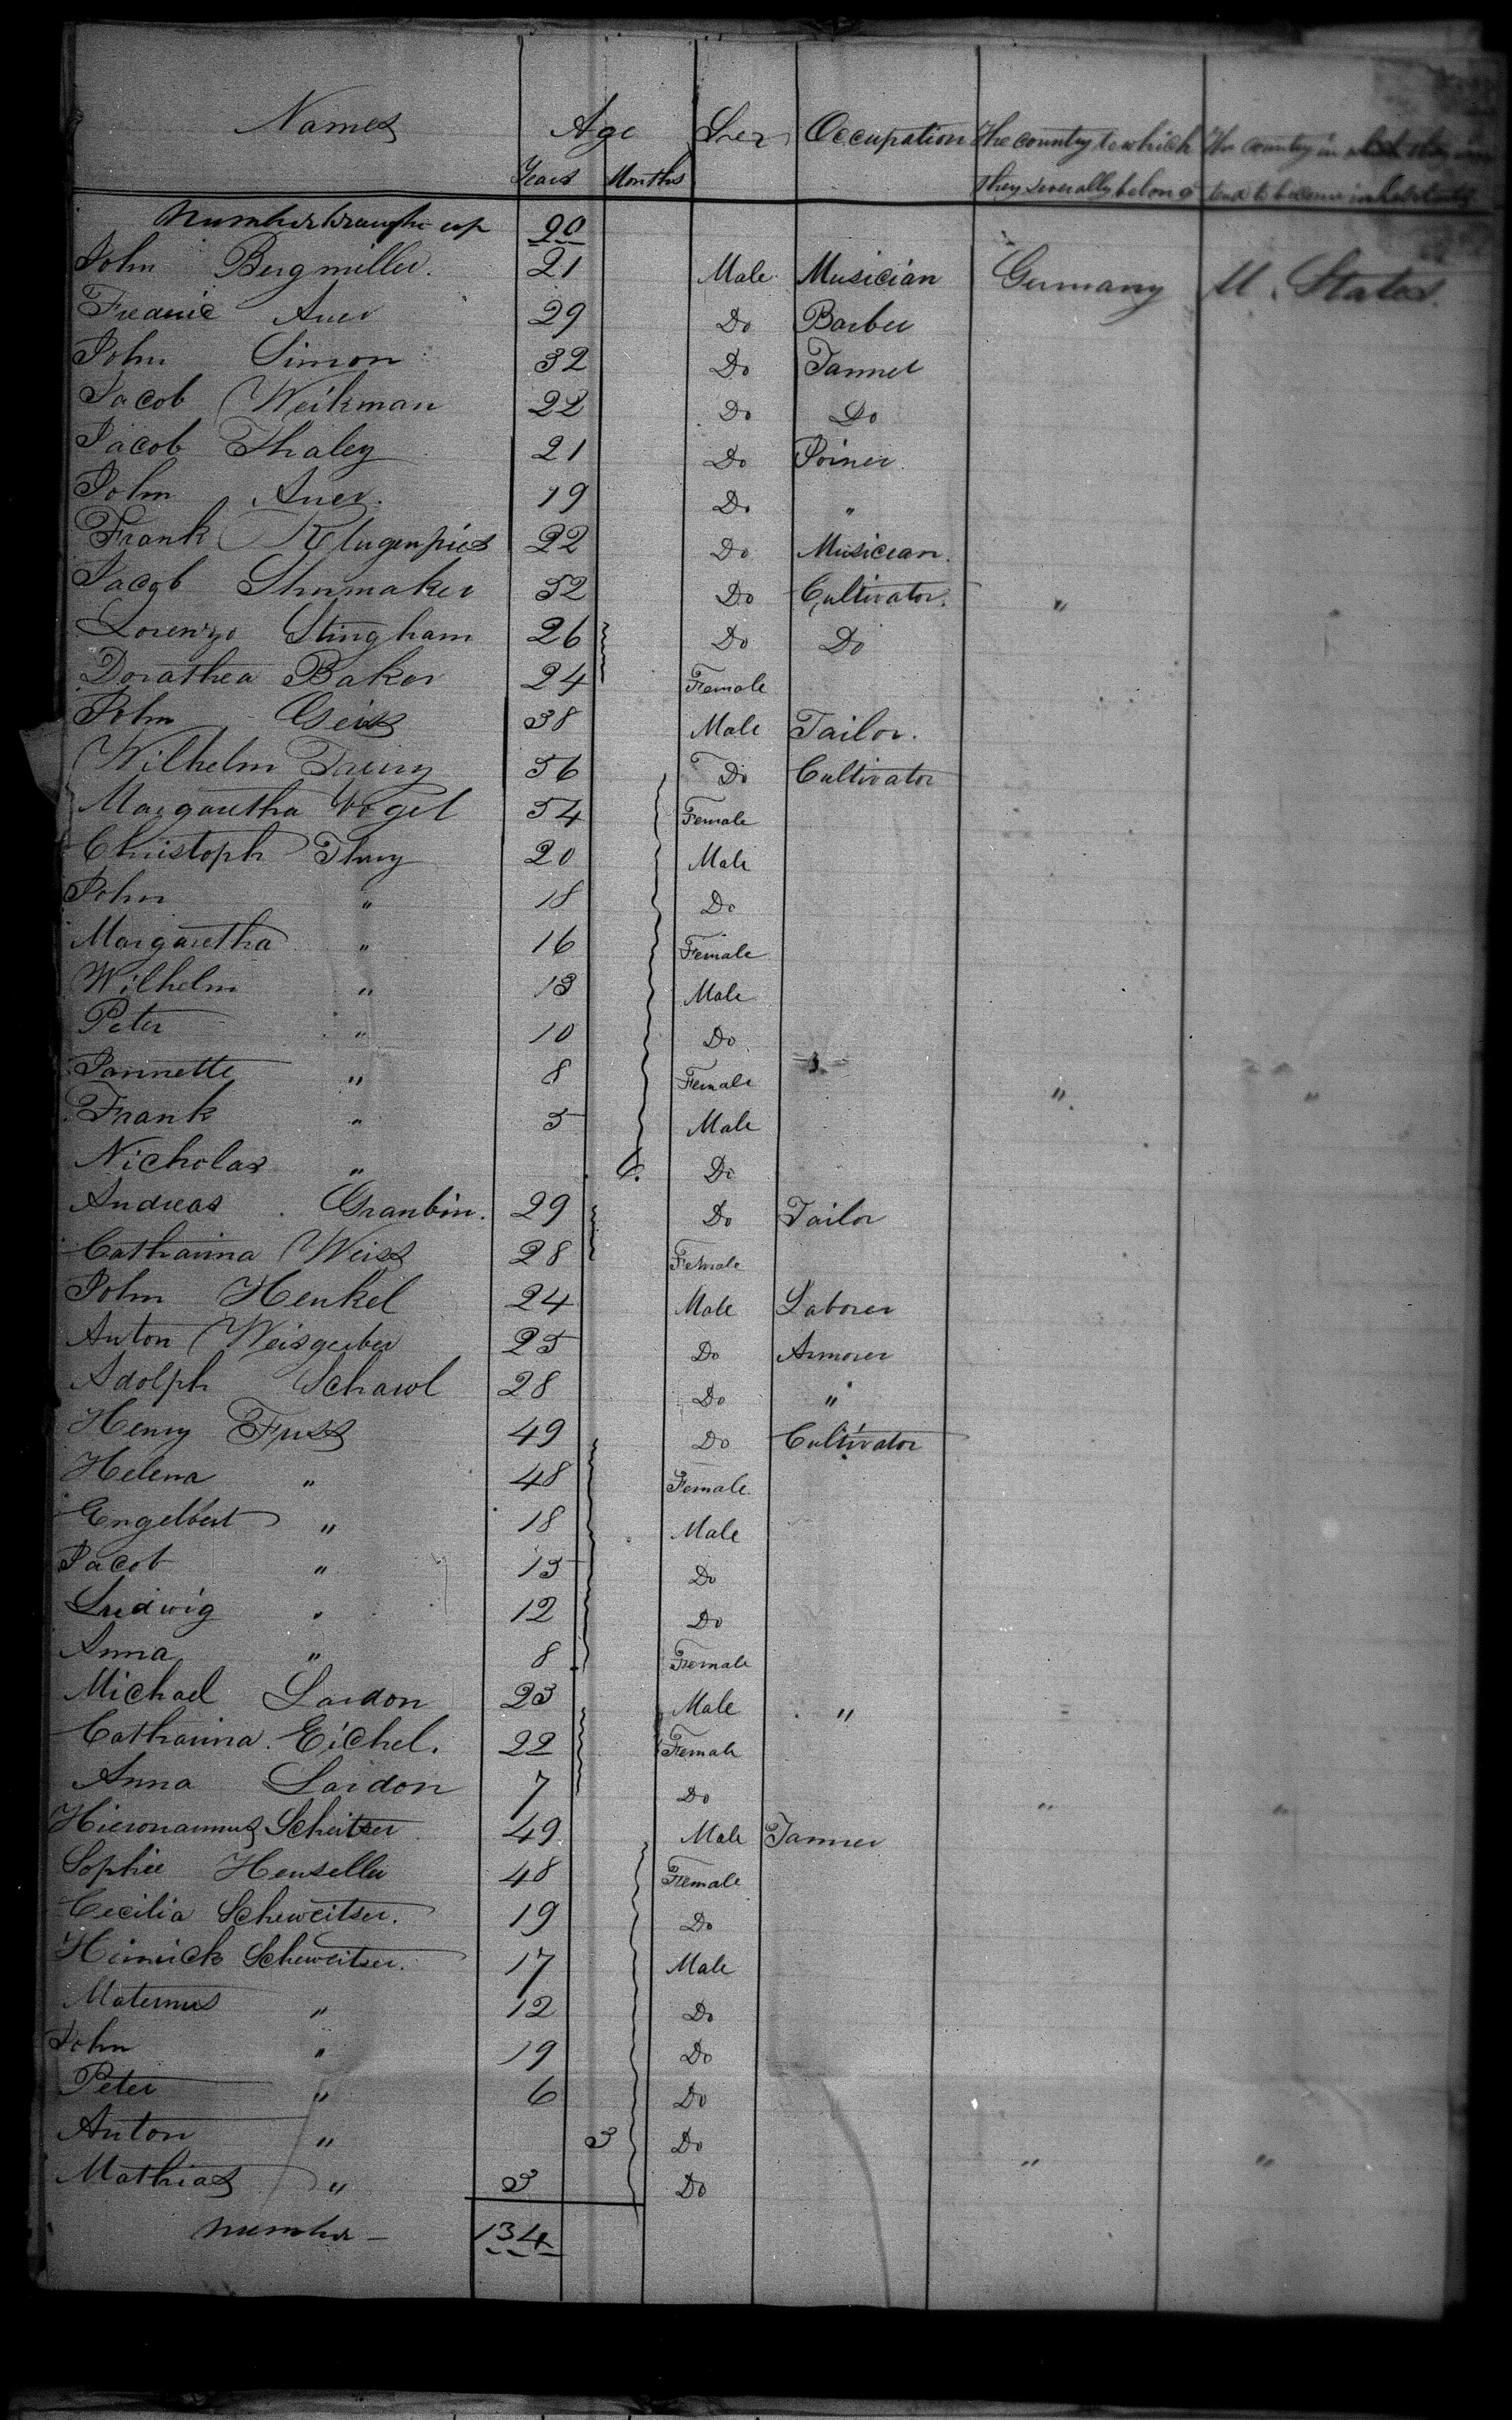 Names Age Sex Occupation The country to which The country in which they in-
Years Months they severally belong tend to become inhabitants
Number brought up 90
John Bergmiller. 21 Male Musician Germany U. States.
Frederic Auer 29 Do Barber
John Simon 32 Do Tanner
Jacob Weikman 22 Do Do
Jacob Thaley 21 Do Joiner
John Auer. 19 Do "
Frank 22 Do Musician.
Jacob Shumaker 52 Do Cultivator. " "
Lorenzo Stingham 26 Do Do
Dorathea Baker 24 Female
John Geiss 38 Male Tailor.
Wilhelm 56 Do Cultivator
Margaretha Vogel 54 Female
Christoph Thury 20 Male
John " 18 Do
Margaretha " 16 Female
Wilhelm " 13 Male
Peter " 10 Do
Jannette " 8 Female " "
Frank " 5 Male
Nicholas " 6. Do
Andreas Granbin. 29 Do Tailor
Catharina Weiss 28 Female
John Henkel 24 Male Laborer
Anton Weisgerber 25 Do Armorer
Adolph Schawl 28 Do "
Henry Fuss 49 Do Cultivator
Helena " 48 Female
Engelbert " 18 Male
Jacob " 15 Do
Ludwig " 12 Do
Anna " 8 Female
Michael Lardon 23 Male "
Catharina Eichel. 22 Female
Anna Lardon 7 Do " "
Hieronamus Scheitser 49 Male Tanner
Sophie Henseller 48 Female
Cecilia Scheweitser. 19 Do
Heinrick Scheweitser. 17 Male
Maternus " 12 Do
John " 19 Do
Peter " 6 Do
Anton " 3 Do
Mathias " 3 Do " "
Number - 134